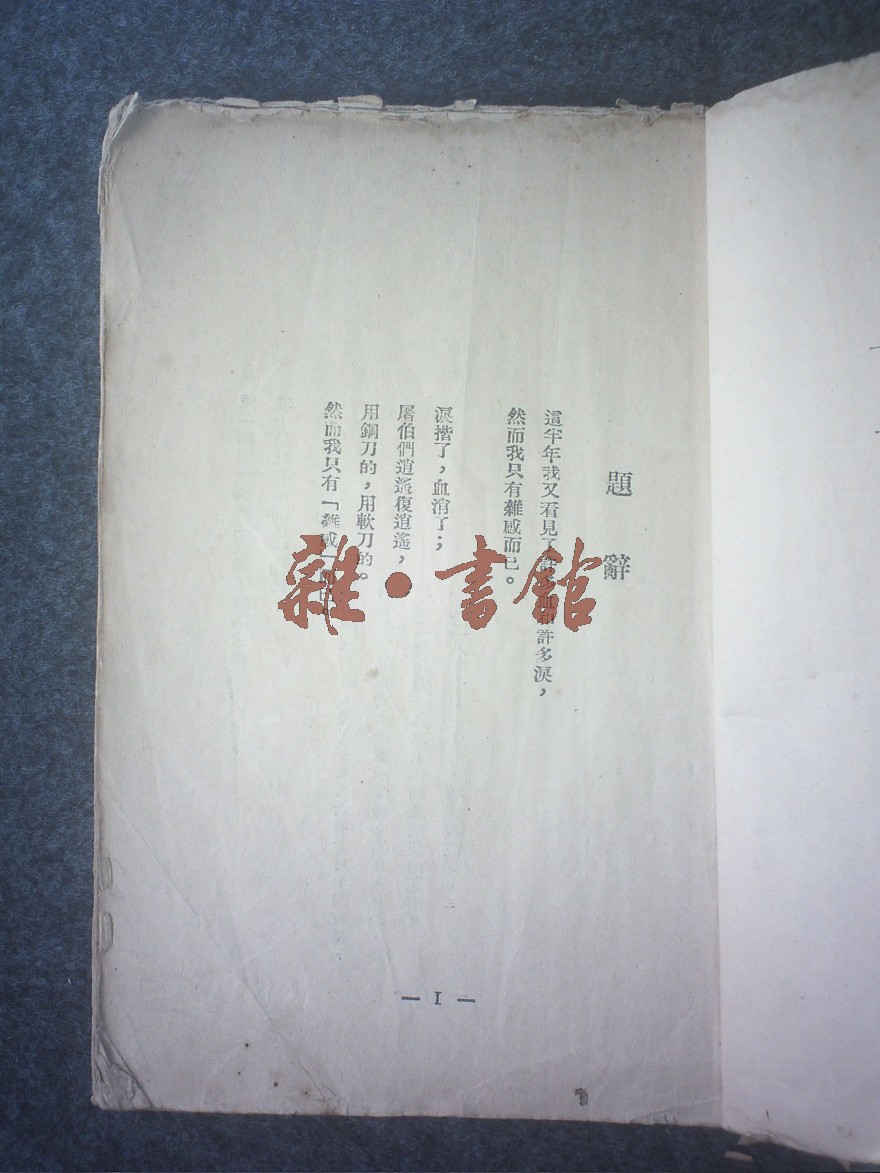 題辭
這半年我又看見了許多血和許多淚，
然而我只有雜感而已。
淚揩了，血消了；
屠伯們逍遙復逍遙，
用鋼刀的，用軟刀的。
然而我只有「雜感」而
雜·書館
— I —